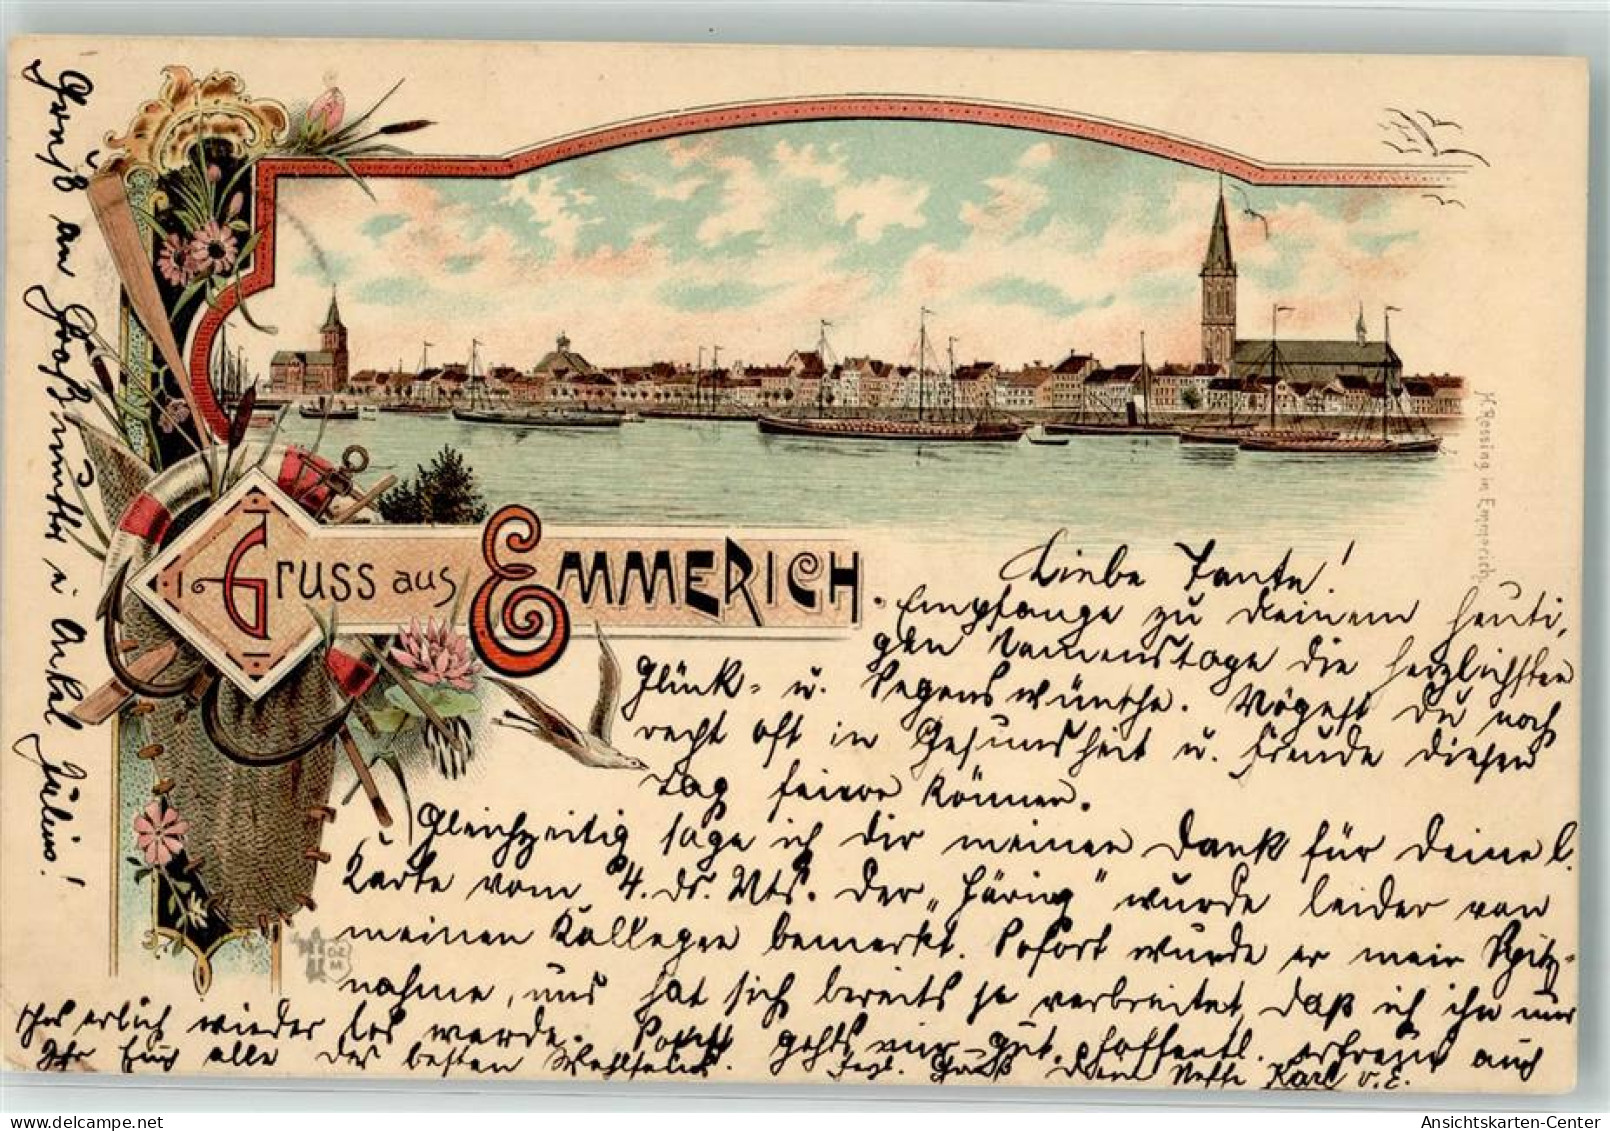 Gruss aus Emmerich.
H. Rossing in Emmerich.
Liebe Tante!
Empfange zu Deinem heuti-
gen Namenstage die herzlichsten
Glück- u. Segenswünsche. Mögest Du noch
recht oft in Gesundheit u. Freude diesen
Tag feiern können.
Gleichzeitig sage ich Dir meinen Dank für Deine l.
Karte vom 4. ds. Mts. Der „Häring" wurde leider von
meinen Kollegen bemerkt. Sofort wurde er mein Spitz-
nahme, und hat sich bereits so verbreitet, daß ich ihn nur
wieder los werde. Sonst gehts mir gut. Hoffentl. erfreut auch
Ihr Euch alle des besten Wohlseins. Herzl. Gruß Dein Neffe Karl v. E.
Gruß an Großmutter u Onkel Julius!
DZ
M
Ansichtskarten-Center